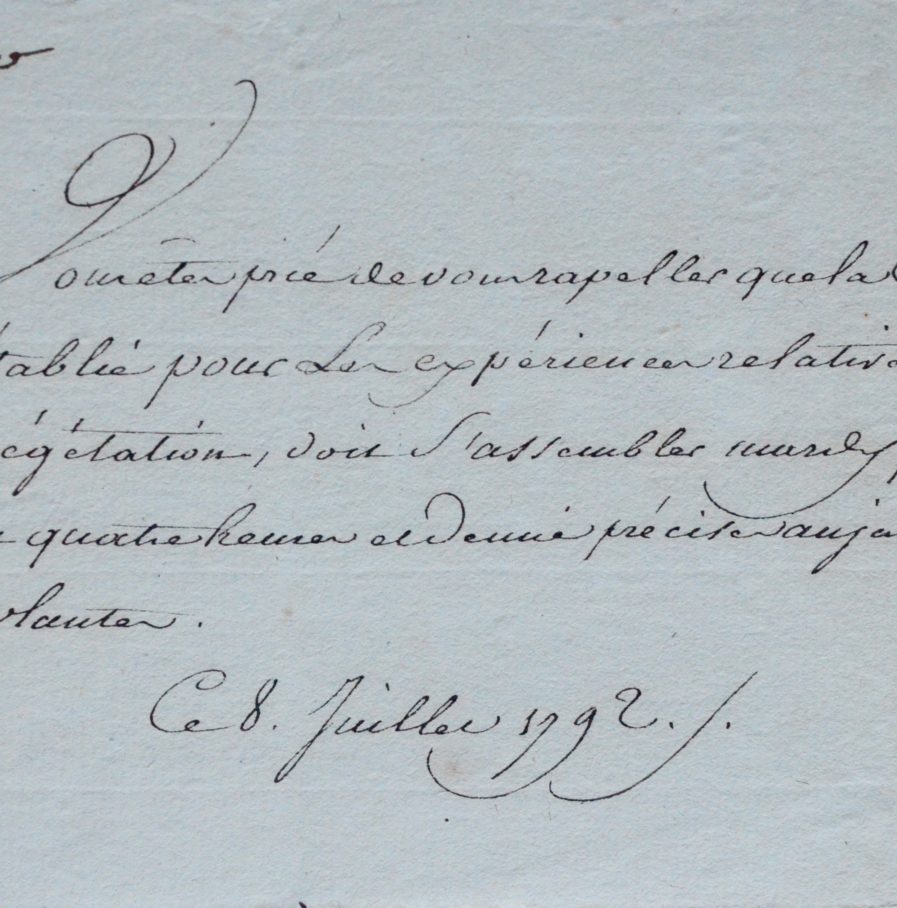 Vous êtes prié de vous rapeller que la
établie pour Les expériences relatives
végétation, doit s'assembler mardy
quatre heures et demie précises au ja
plantes.
Ce 8. Juillet 1792./.